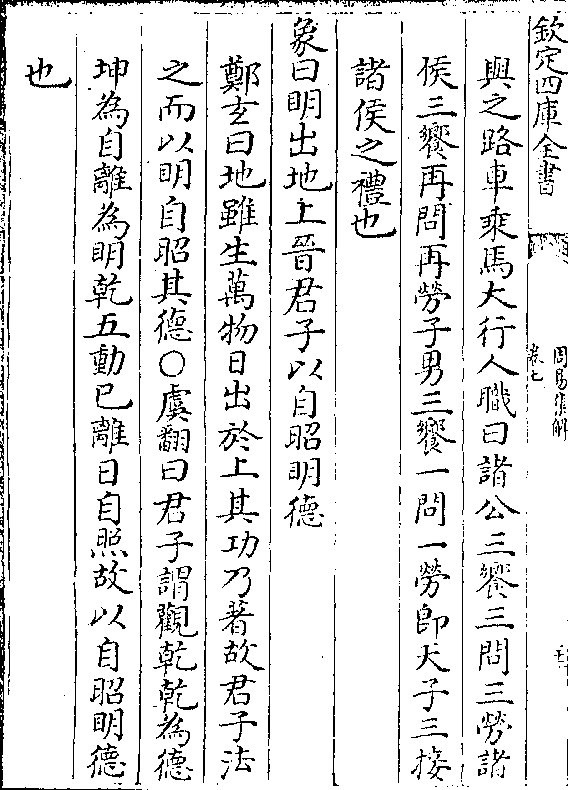 欽定四庫全書
周易集解
卷七
與之路車乘馬大行人職曰諸公三饗三問三勞諸
侯三饗再問再勞子男三饗一問一勞即天子三接
諸侯之禮也
象曰明出地上晉君子以自昭明德
鄭玄曰地雖生萬物日出於上其功乃著故君子法
之而以明自昭其德○虞翻曰君子謂觀乾乾為德
坤為自離為明乾五動已離日自照故以自昭明德
也